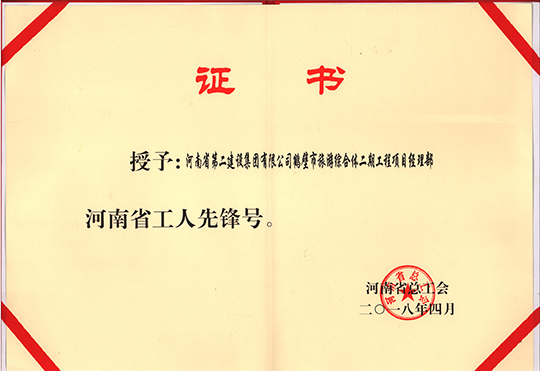 证 书
授予：河南省第二建设集团有限公司鹤壁市旅游综合体二期工程项目经理部
河南省工人先锋号。
河南省总工会
二〇一八年四月
河南省总工会